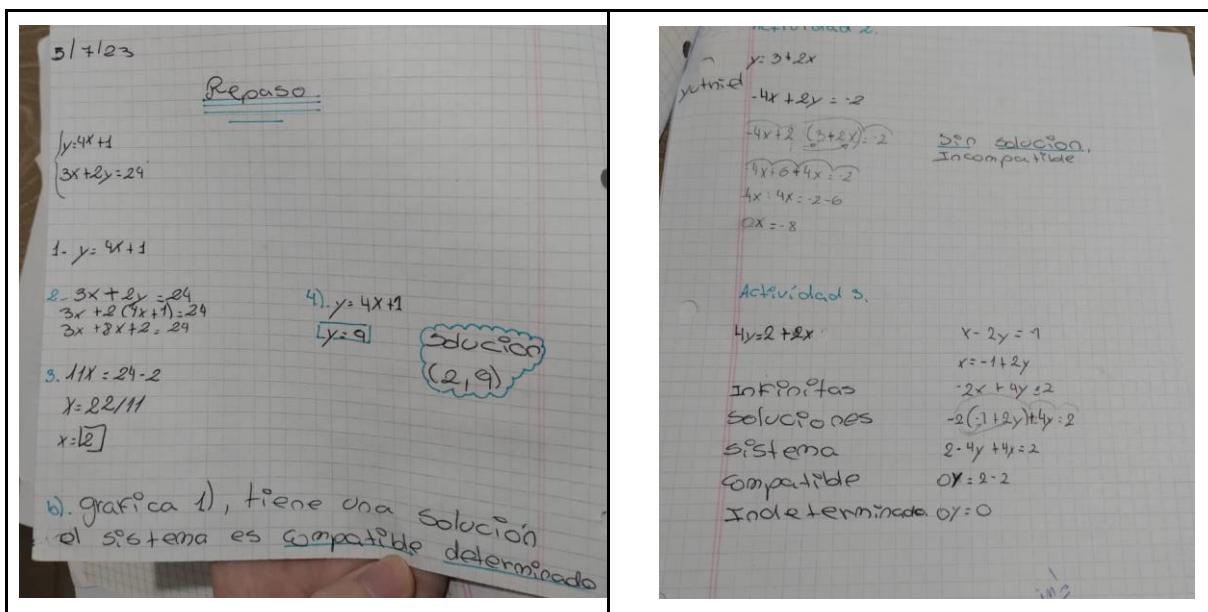 5/7/23
Repaso
y=4x+1
3x+2y=24
1- y=4x+1
2- 3x+2y=24
3x+2(4x+1)=24
3x+8x+2=24
3. 11x=24-2
x=22/11
x=2
4). y=4x+1
y=9
Solución
(2,9)
b). grafica 1), tiene una solución
el sistema es compatible determinado
Actividad 2.
y=3+2x
-4x+2y=-2
-4x+2(3+2x)=-2
Sin solución,
Incompatible
4x+6+4x=-2
4x+4x=-2-6
0x=-8
Actividad 3.
4y=2+2x
Infinitas
soluciones
sistema
compatible
Indeterminado
x-2y=1
x=-1+2y
-2x+4y=2
-2(-1+2y)+4y=2
2-4y+4x=2
0y=2-2
0y=0